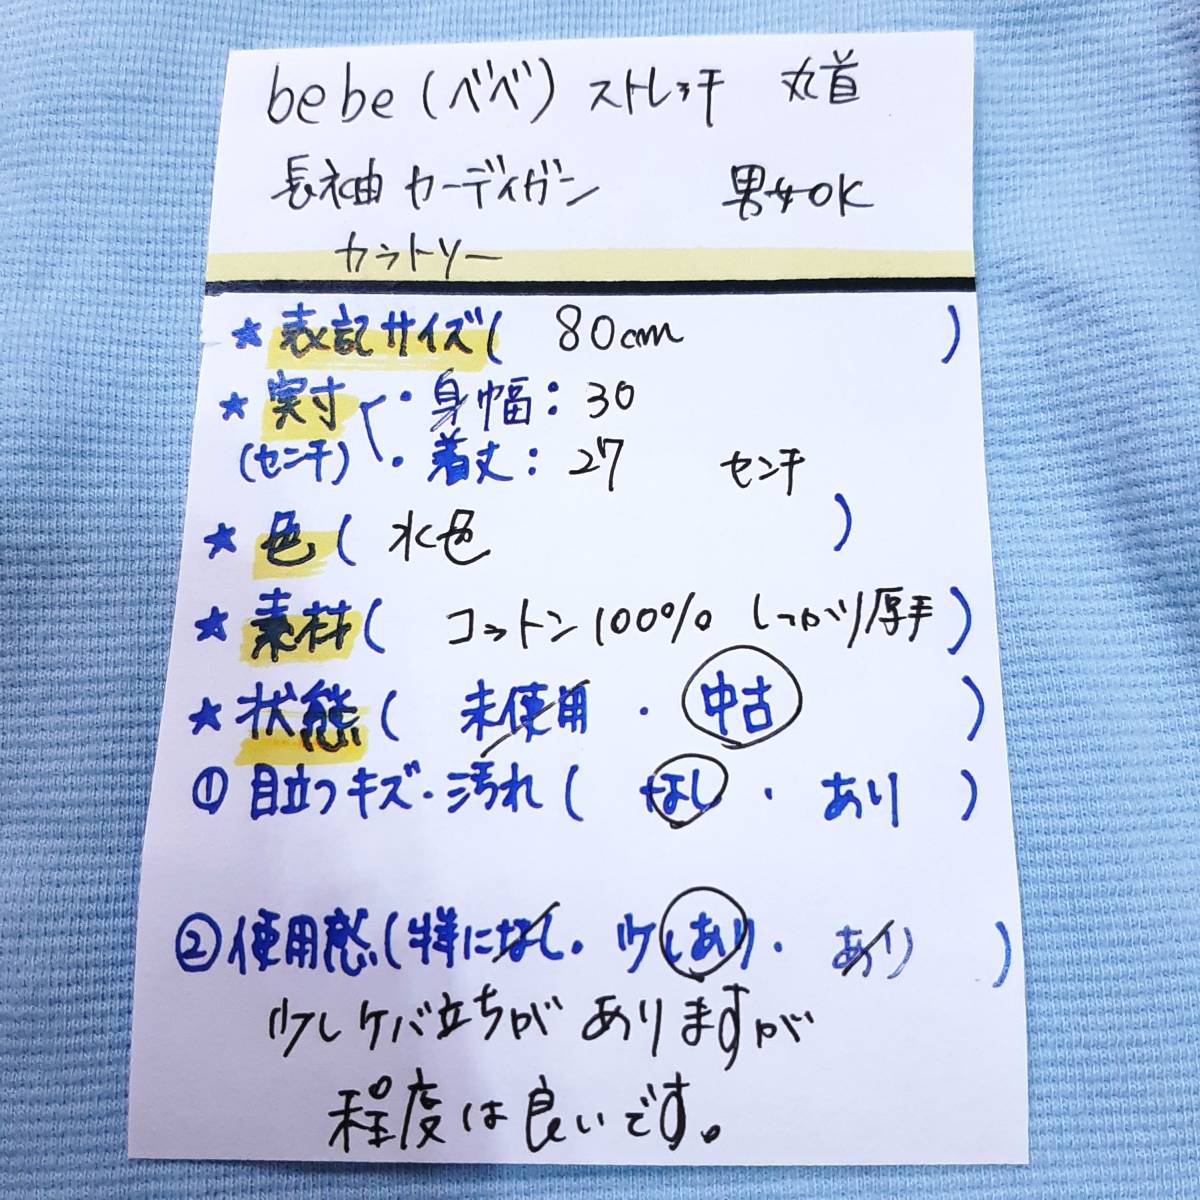 bebe(べべ) ストレッチ 丸首
長袖 カーディガン 男女OK
カットソー
★表記サイズ( 80cm )
★実寸 ・身幅: 30
(センチ) ・着丈: 27 センチ
★色( 水色 )
★素材( コットン100% しっかり厚手)
★状態( 未使用 ・ 中古 )
①目立つキズ・汚れ( なし ・ あり )
②使用感(特になし・少しあり・ あり )
少しケバ立ちがありますが
程度は良いです。